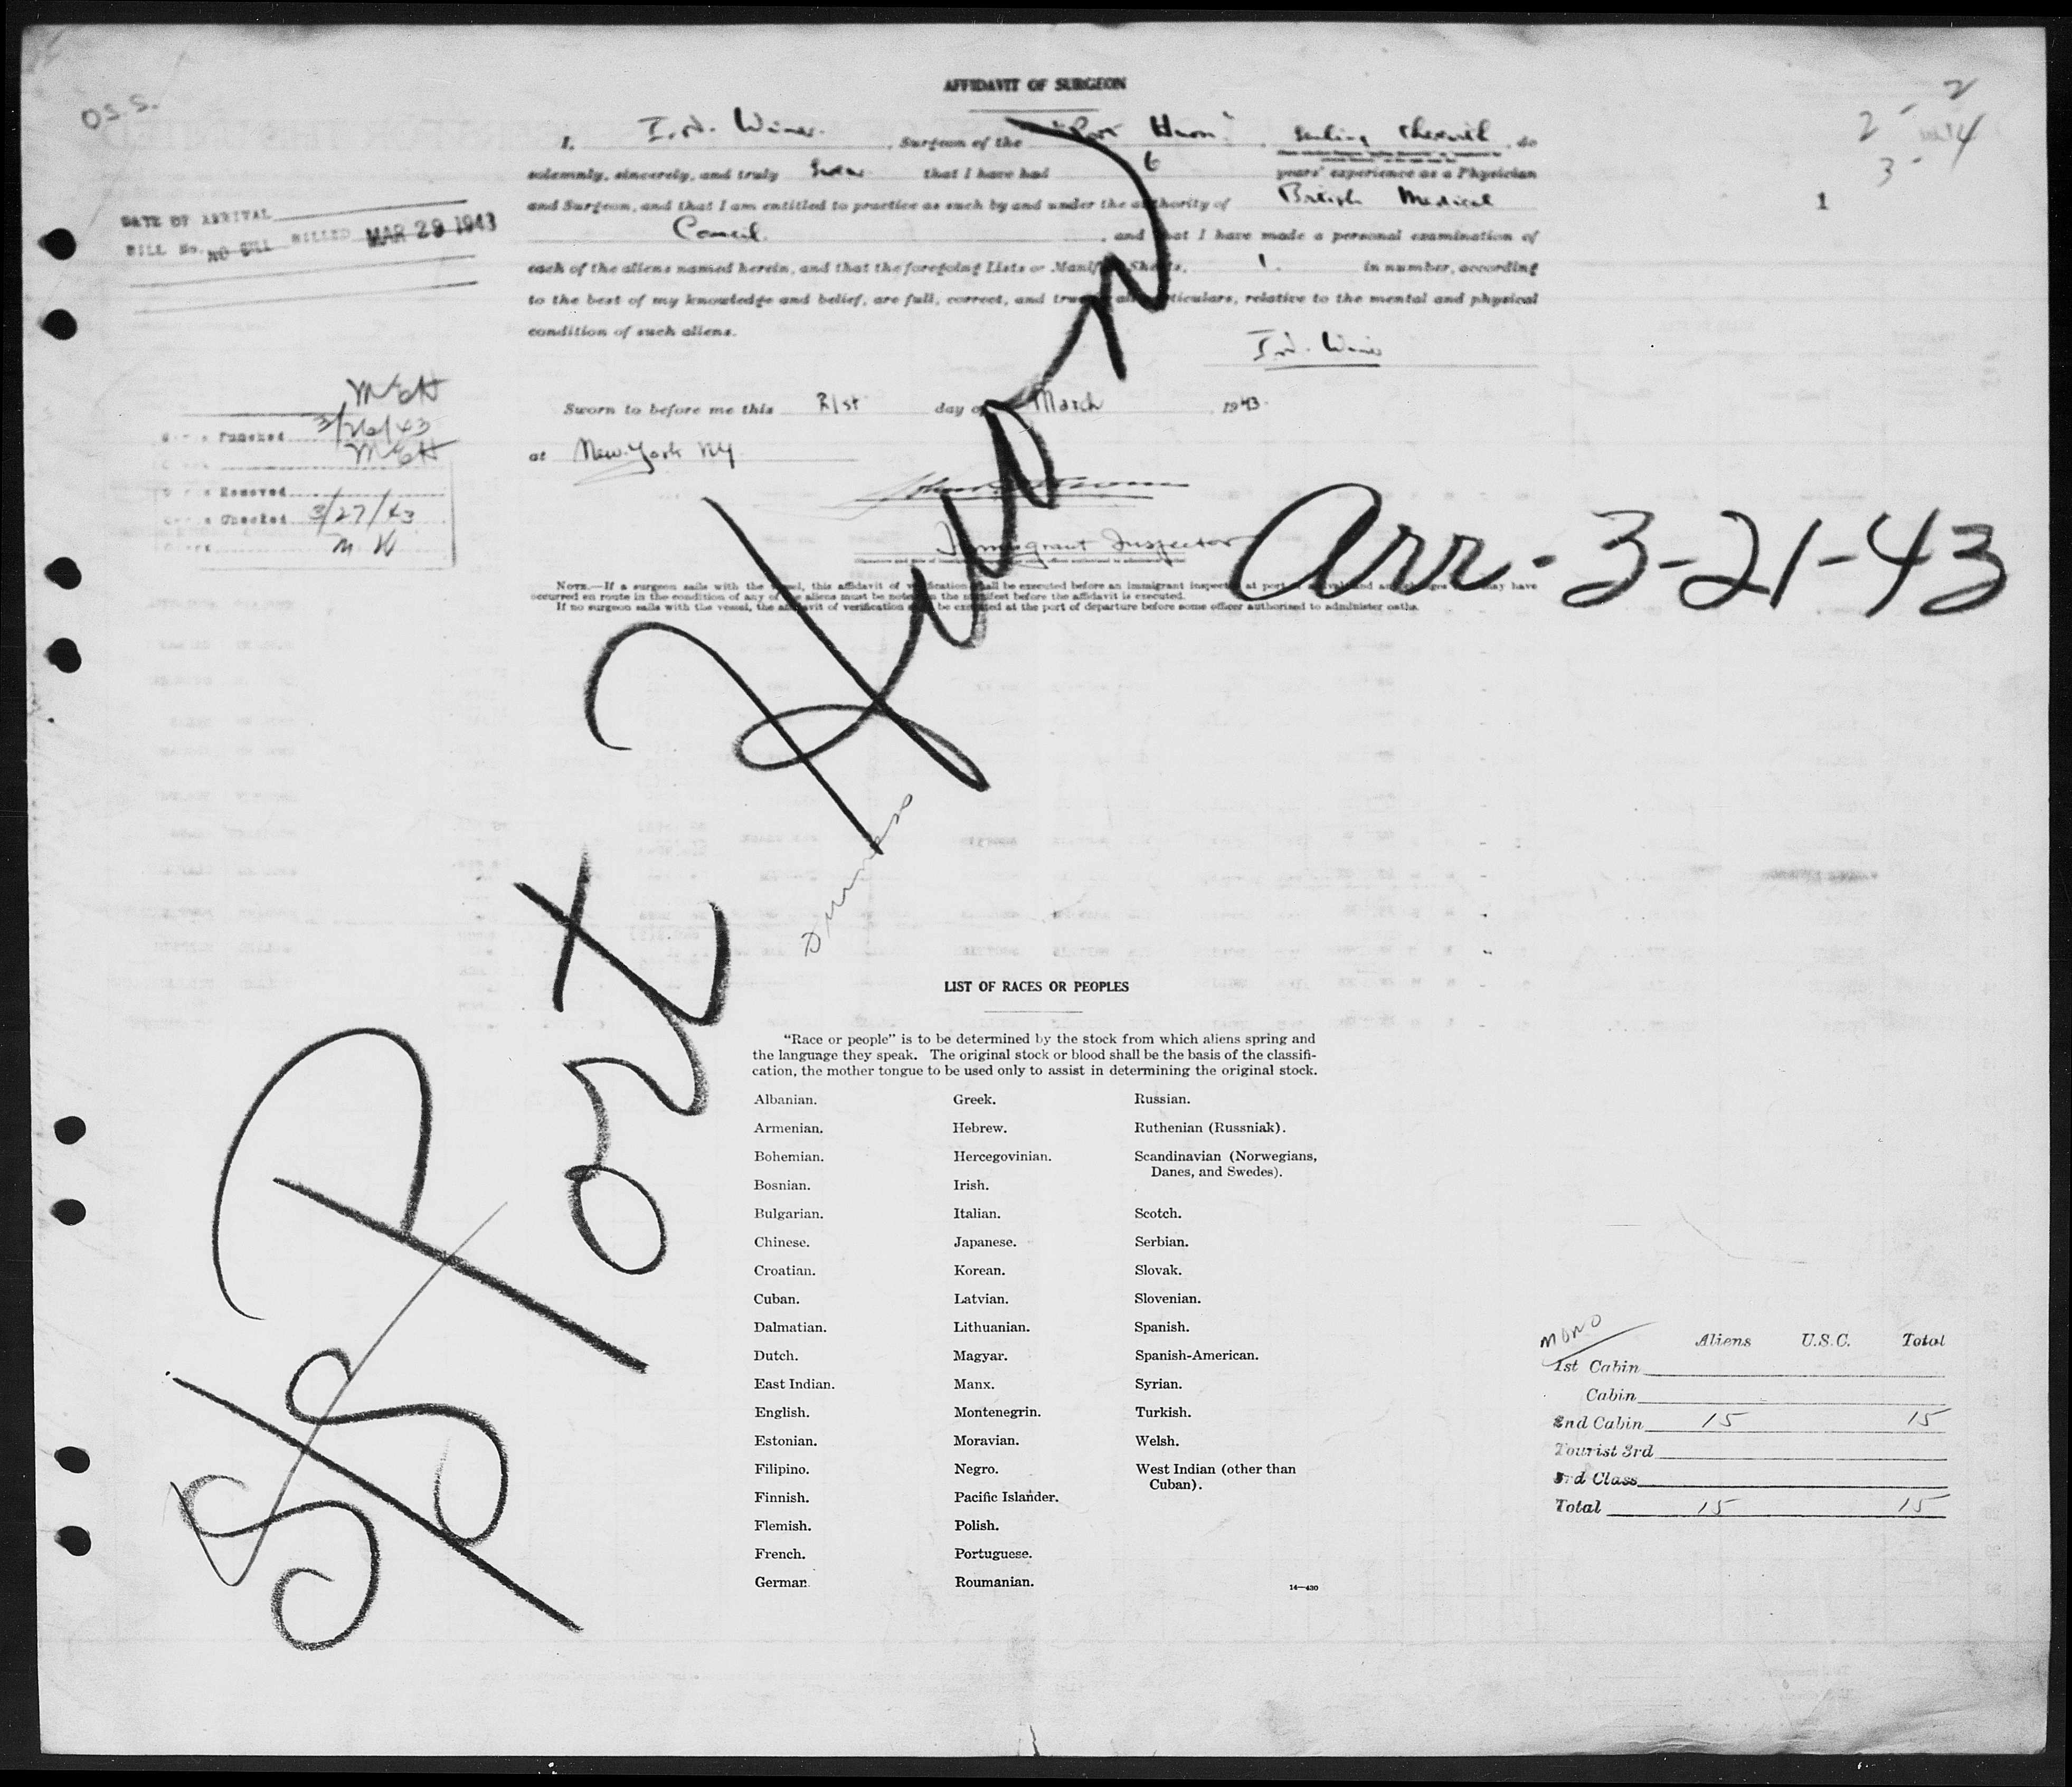 AFFIDAVIT OF SURGEON
O.S.S.
2 - 2
3 - 4
1
I, I. N. , Surgeon of the "Port Huon", Sailing therewith, do
solemnly, sincerely, and truly Swear that I have had 6 years' experience as a Physician
and Surgeon, and that I am entitled to practice as such by and under the authority of British Medical
Council, and that I have made a personal examination of
each of the aliens named herein, and that the foregoing Lists or Manifest Sheets, 1. in number, according
to the best of my knowledge and belief, are full, correct, and true in all particulars, relative to the mental and physical
condition of such aliens.
DATE OF ARRIVAL
BILL No. NO BILL BILLED MAR 29 1943
Sworn to before me this 21st day of March, 1943
at New York NY
Immigrant Inspector
NOTE.—If a surgeon sails with the vessel, this affidavit of verification shall be executed before an immigrant inspector at port of arrival and any changes which may have
occurred en route in the condition of any of the aliens must be noted on the manifest before the affidavit is executed.
If no surgeon sails with the vessel, the affidavit of verification shall be executed at the port of departure before some officer authorized to administer oaths.
MEH
Punched 3/26/43
MEH
Removed
Checked 3/27/43
M.K
Arr-3-21-43
S/S Port Huon
LIST OF RACES OR PEOPLES
"Race or people" is to be determined by the stock from which aliens spring and
the language they speak. The original stock or blood shall be the basis of the classifi-
cation, the mother tongue to be used only to assist in determining the original stock.
Albanian.
Armenian.
Bohemian.
Bosnian.
Bulgarian.
Chinese.
Croatian.
Cuban.
Dalmatian.
Dutch.
East Indian.
English.
Estonian.
Filipino.
Finnish.
Flemish.
French.
German.
Greek.
Hebrew.
Hercegovinian.
Irish.
Italian.
Japanese.
Korean.
Latvian.
Lithuanian.
Magyar.
Manx.
Montenegrin.
Moravian.
Negro.
Pacific Islander.
Polish.
Portuguese.
Roumanian.
Russian.
Ruthenian (Russniak).
Scandinavian (Norwegians,
Danes, and Swedes).
Scotch.
Serbian.
Slovak.
Slovenian.
Spanish.
Spanish-American.
Syrian.
Turkish.
Welsh.
West Indian (other than
Cuban).
14—430
MONO
Aliens U.S.C. Total
1st Cabin
Cabin
2nd Cabin 15 15
Tourist 3rd
3rd Class
Total 15 15